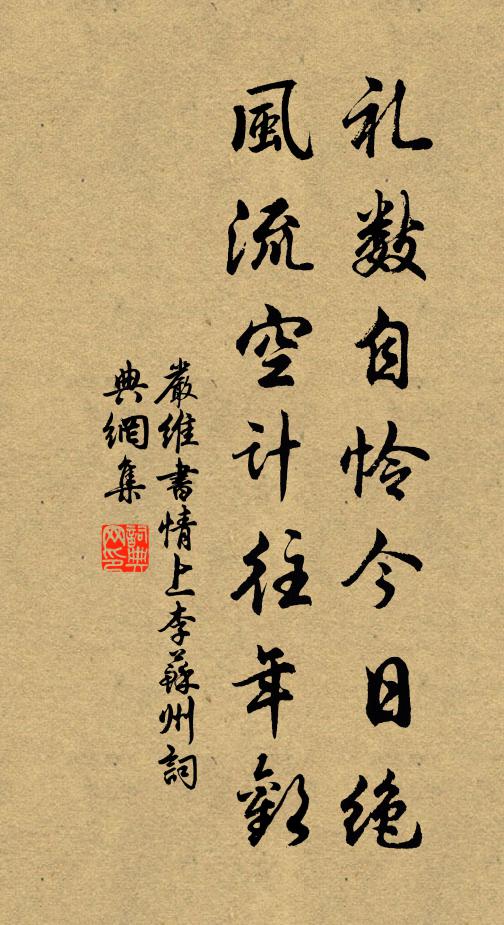 礼数自怜今日绝
風流空计往年歡
嚴維書情上李蘇州詞
典網集
詞典网印